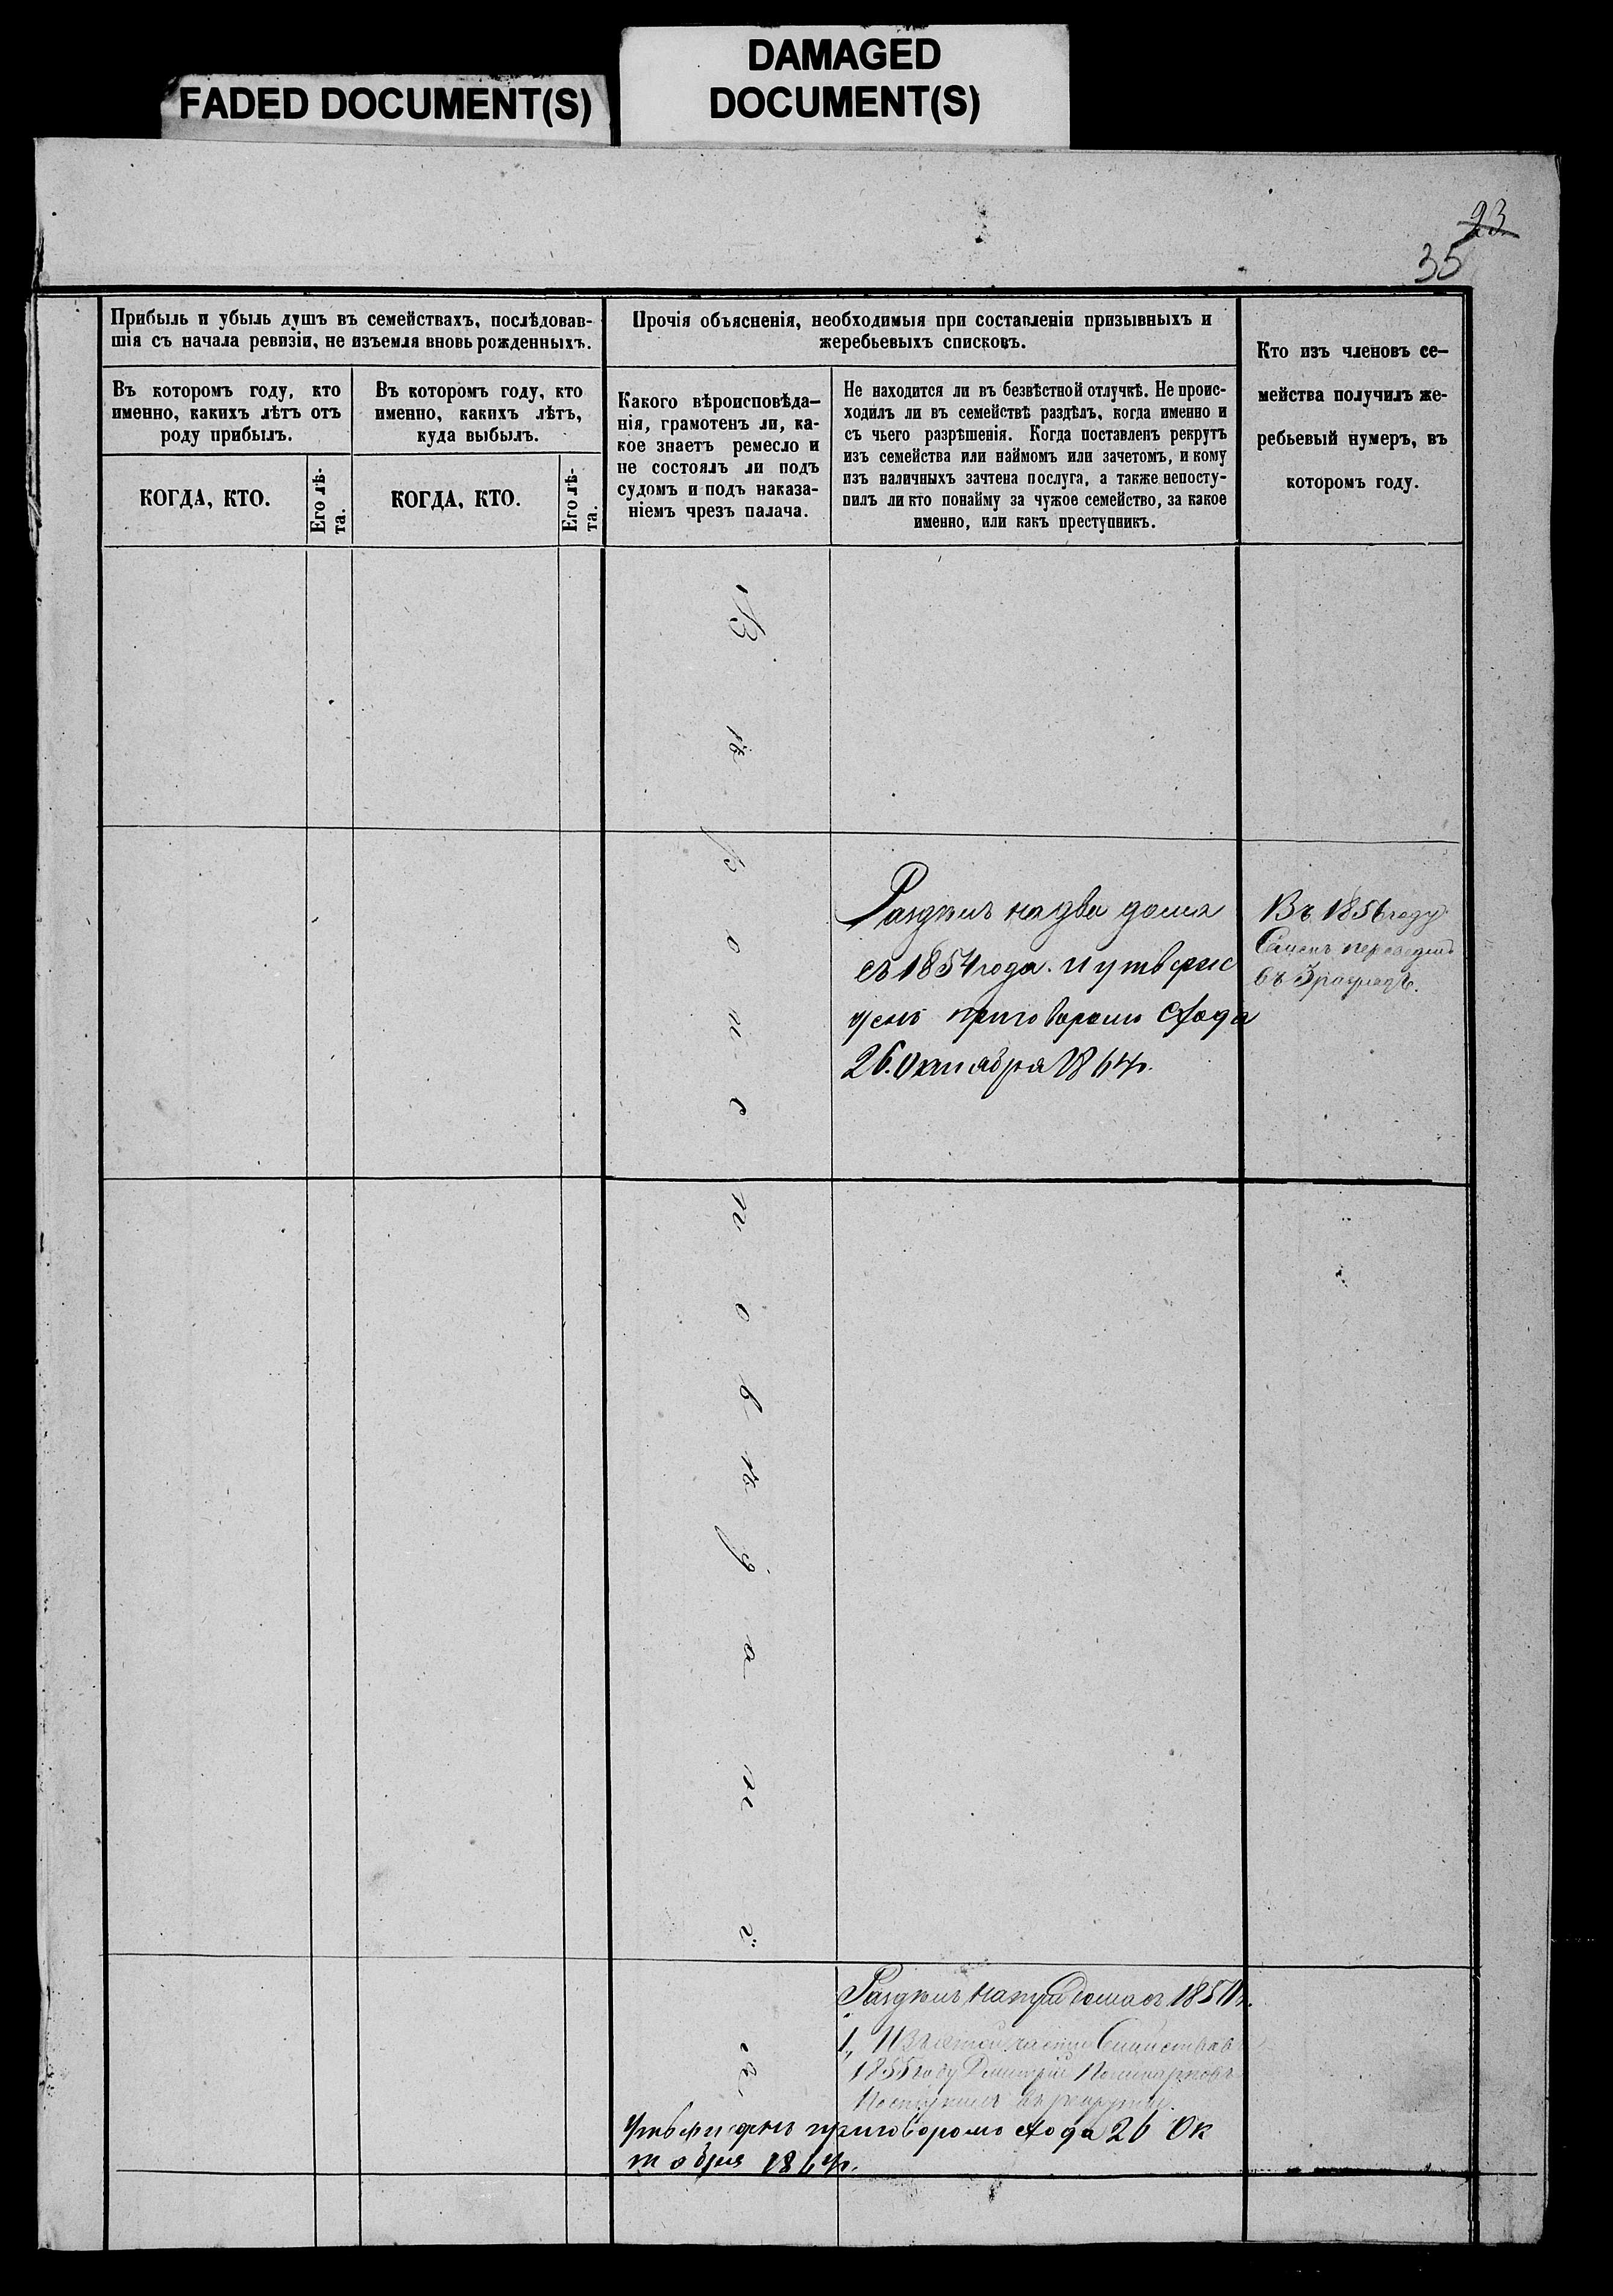 FADED DOCUMENT(S)
DAMAGED
DOCUMENT(S)
23
35
Прибыль и убыль душъ въ семействахъ, послѣдовав-
шія съ начала ревизіи, не изъемля вновь рожденныхъ.
Въ которомъ году, кто
именно, какихъ лѣтъ отъ
роду прибылъ.
Въ которомъ году, кто
именно, какихъ лѣтъ,
куда выбылъ.
КОГДА, КТО.
Его лѣ-
та.
КОГДА, КТО.
Его лѣ-
та.
Прочія объясненія, необходимыя при составленіи призывныхъ и
жеребьевыхъ списковъ.
Какого вѣроисповѣда-
нія, грамотенъ ли, ка-
кое знаетъ ремесло и
не состоялъ ли подъ
судомъ и подъ наказа-
ніемъ чрезъ палача.
Не находится ли въ безвѣстной отлучкѣ. Не проис-
ходилъ ли въ семействѣ раздѣлъ, когда именно и
съ чьего разрѣшенія. Когда поставленъ рекрутъ
изъ семейства или наймомъ или зачетомъ, и кому
изъ наличныхъ зачтена послуга, а также непосту-
пилъ ли кто понайму за чужое семейство, за какое
именно, или какъ преступникъ.
Кто изъ членовъ се-
мейства получилъ же-
ребьевый нумеръ, въ
которомъ году.
Вѣроисповѣданія
Раздѣлъ на два дома
съ 1854 года. и утверж
денъ приговоромъ схода
26. Октября 1864г.
Въ 1856 году
Семенъ
въ 3
Раздѣлъ на дома съ 185
1, Изъ семейства въ
1855 году Дмитрій
Поступилъ въ рекруты
Утвержденъ приговоромъ схода 26 Ок
тобря 1864г.